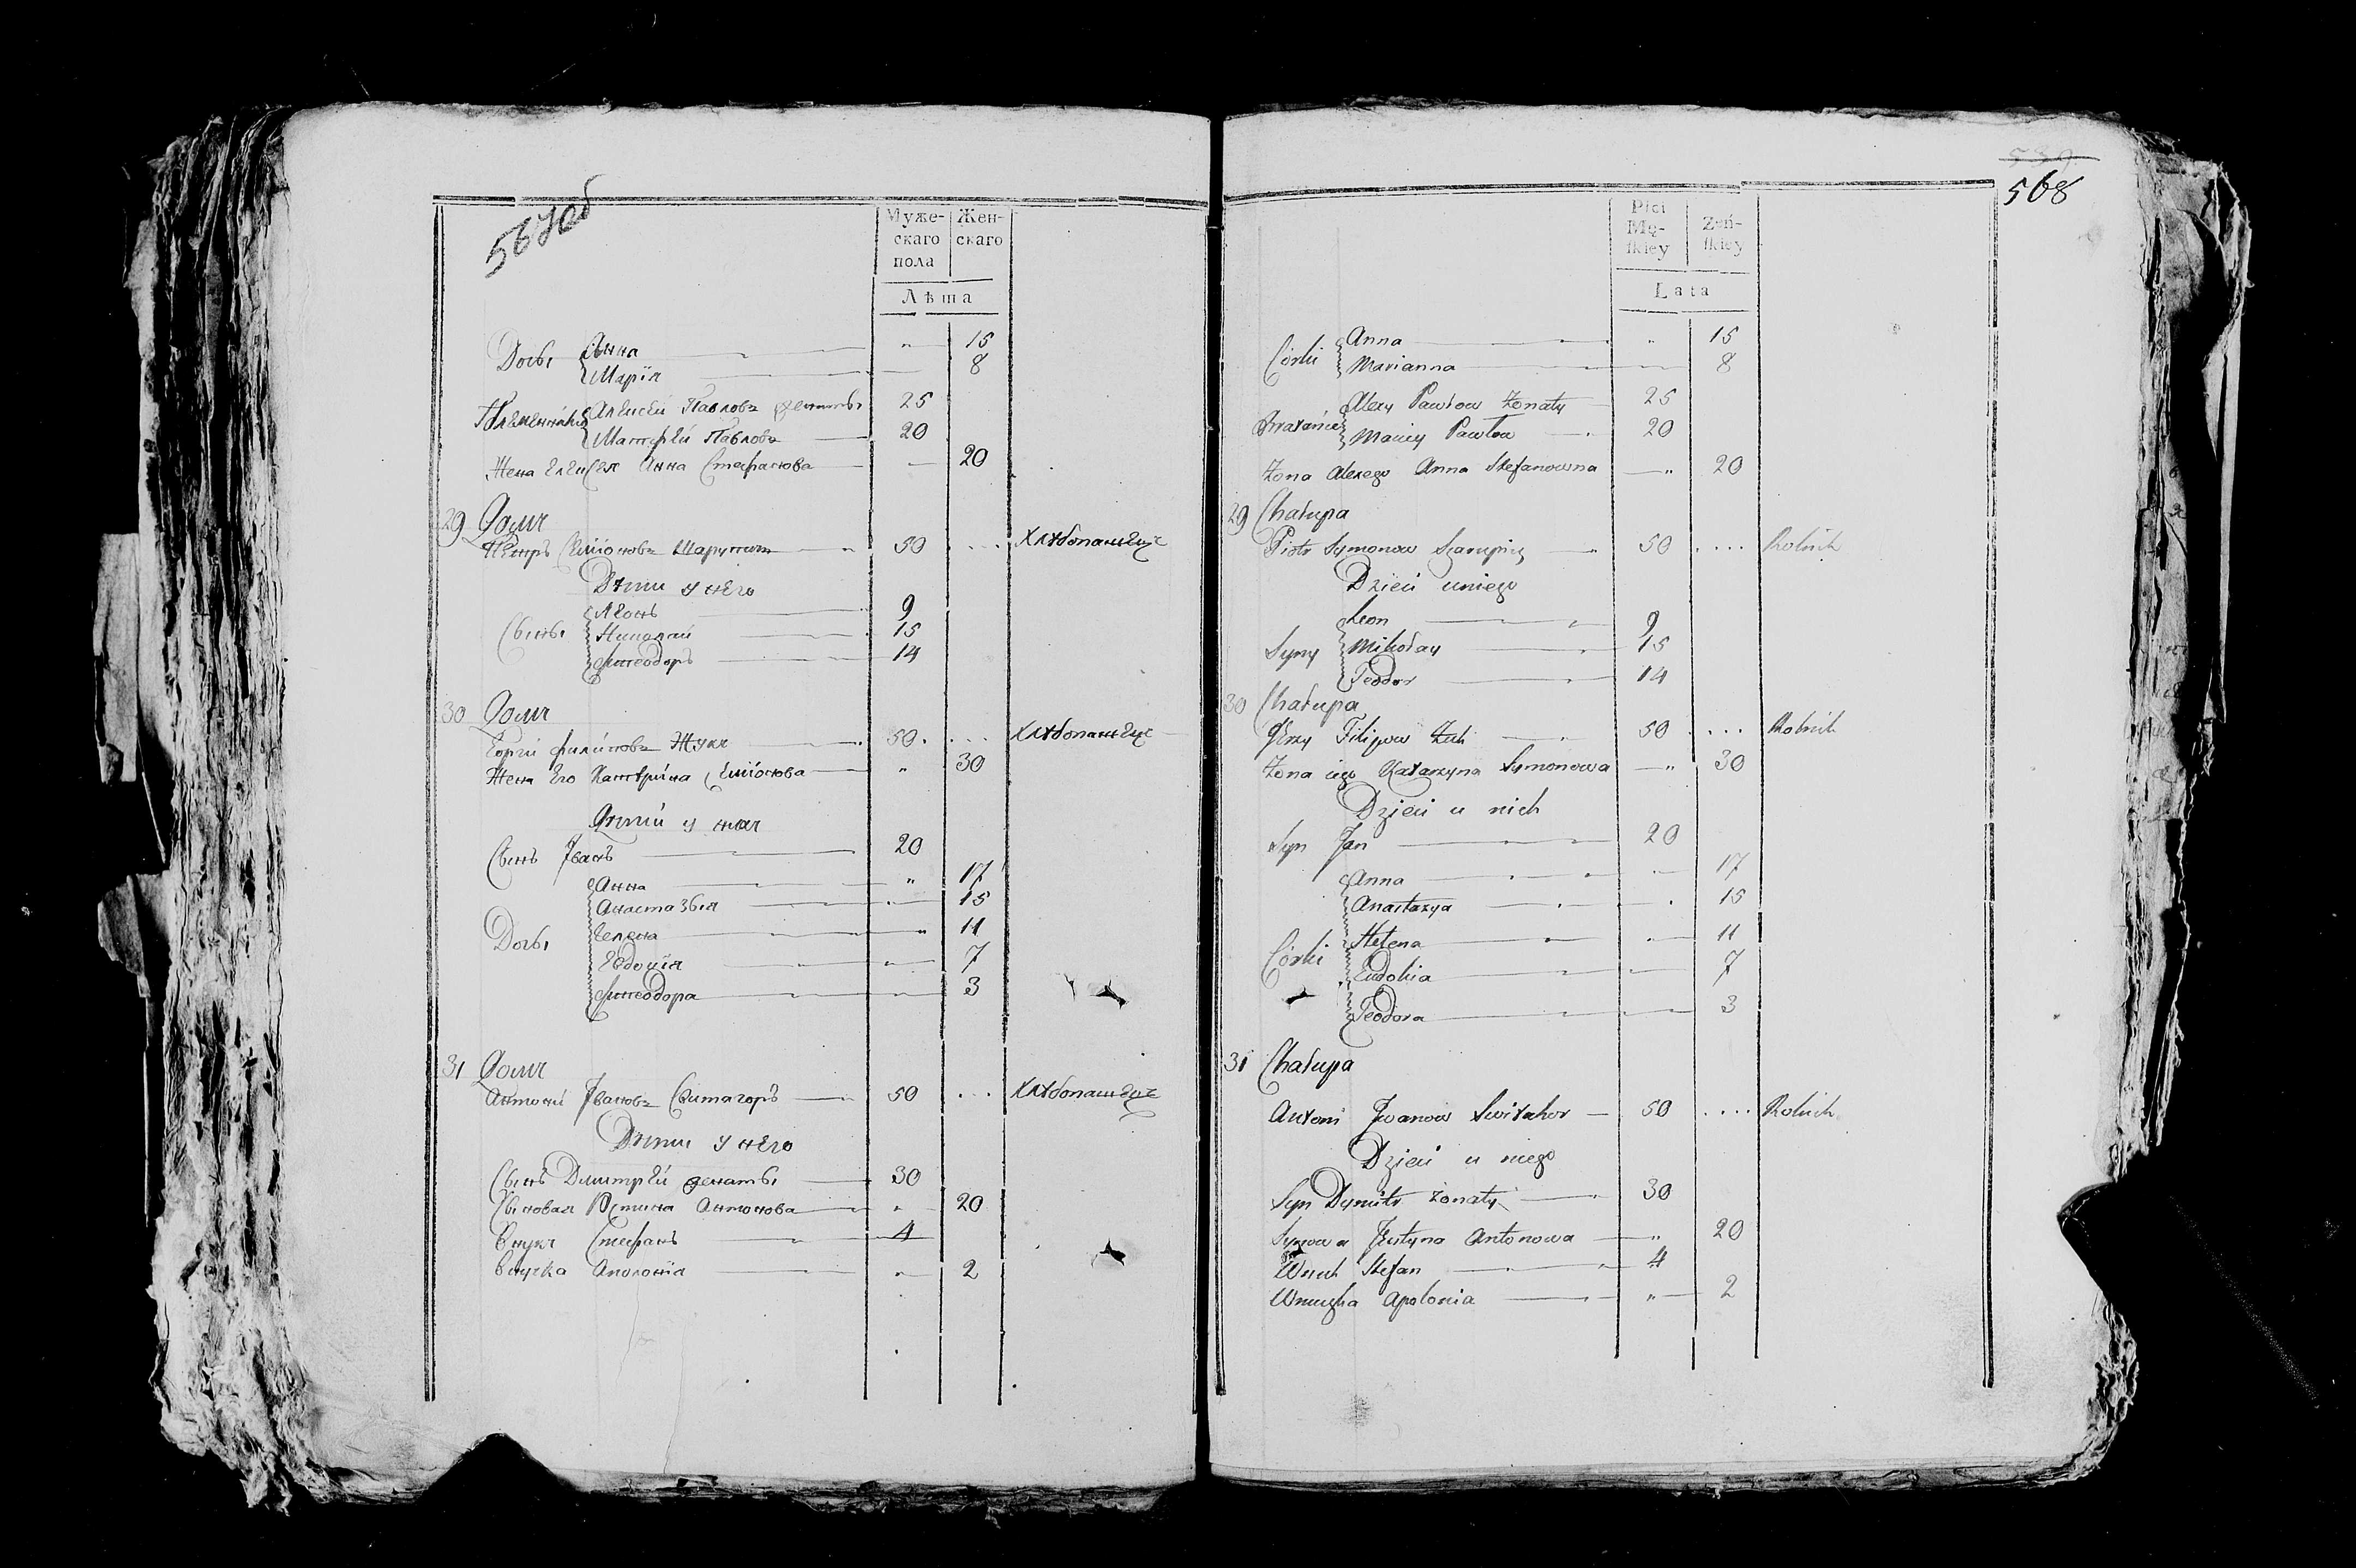 567об
Муже-
скаго
пола
Жен-
скаго
Лѣта
Дочы Анна " 15
Марія 8
Племенники Алексѣй Павловъ женатъ 25
Матфѣй Павловъ 20
Жена Анна Стефанова 20
29 Домъ
Петръ Симоновъ 50 .... Хлѣбопашецъ
Дѣти у него
Леонъ 9
Сыны Николай 15
Фтеодоръ 14
30 Домъ
Филиповъ Жукъ 50 .... Хлѣбопашецъ
Жена Его Катерина Симонова " 30
Дѣтій у нихъ
Сынъ Іванъ 20
Анна " 17
Анастазыя " 15
Дочы Гелена " 11
Евдокія " 7
Фтеодора " 3
31 Домъ
Антоній Івановъ Свитагоръ 50 ... Хлѣбопашецъ
Дѣти у него
Сынъ Димитрѣй женаты 30
Сыновая Юстина Антонова " 20
Внукъ Стефанъ 4
Внучка Аполонія " 2
539
568
Płci
Mę-
ſkiey
Żeń-
ſkiey
Lata
Córki Anna " 15
Marianna 8
Alexy Pawłow żonaty 25
Maciey Pawłow 20
Żona Alexego Anna Stefanowna " 20
29 Chałupa
Piotr Symonow 50 .... Rolnik
Dzieci uniego
Leon 9
Syny Mikołay 15
Teodor 14
30 Chałupa
Jerzy Filipow Żuk 50 .... Rolnik
Żona iego Katarzyna Symonowa " 30
Dzieci u nich
Syn Jan 20
Anna " 17
Anastazya " 15
Córki Helena " 11
Eudokia " 7
Teodora 3
31 Chałupa
Antoni Iwanow Switahor 50 .... Rolnik
Dzieci u niego
Syn Dymitr żonaty 30
Synowa Justyna Antonowa " 20
Wnuk Stefan 4
Wnuczka Apolonia " 2